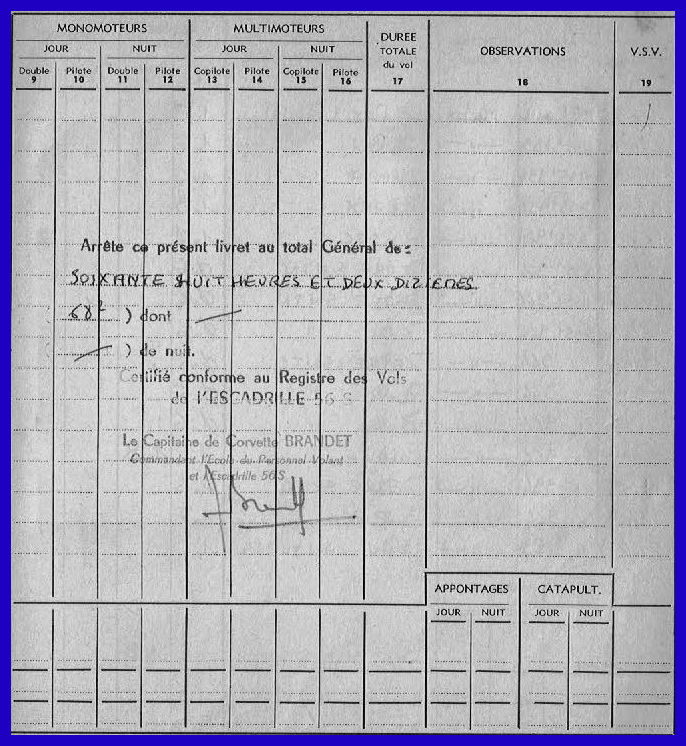 MONOMOTEURS MULTIMOTEURS DURÉE TOTALE du vol OBSERVATIONS V.S.V.
JOUR NUIT JOUR NUIT
Double Pilote Double Pilote Copilote Pilote Copilote Pilote
9 10 11 12 13 14 15 16 17 18 19
Arrête ce présent livret au total Général de:
SOIXANTE HUIT HEURES ET DEUX DIZIEMES
68² ) dont
) de nuit.
Certifié conforme au Registre des Vols
de l'ESCADRILLE 56 S
Le Capitaine de Corvette BRANDET
Commandant l'Ecole du Personnel Volant
et l'Escadrille 56 S
APPONTAGES CATAPULT.
JOUR NUIT JOUR NUIT